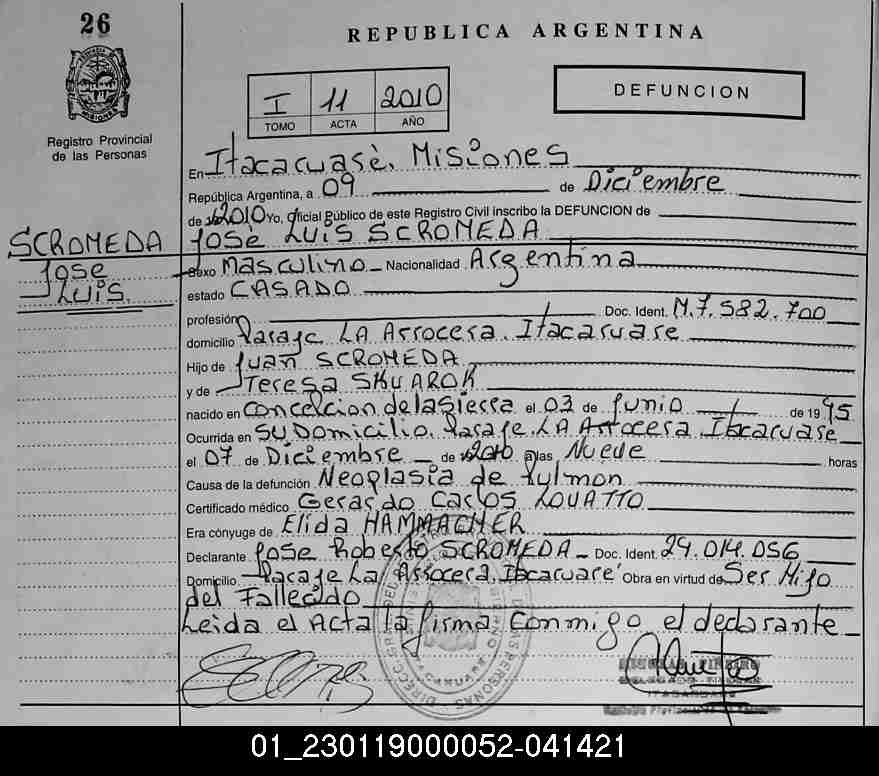 26
REPUBLICA ARGENTINA
I 11 2010
TOMO ACTA AÑO
DEFUNCION
Registro Provincial
de las Personas
En Itacaruasè, Misiones
República Argentina, a 09 de Diciembre
de 2010 Yo, Oficial Público de este Registro Civil inscribo la DEFUNCION de
SCROMEDA
Jose
Luis.
Josè Luis SCROMEDA
Sexo Masculino Nacionalidad Argentina
estado CASADO
profesión Doc. Ident. M.7.582.700
domicilio Paraje LA Arrocera. Itacaruare
Hijo de Juan SCROMEDA
y de Teresa SKUAROK
nacido en Concepcion de la Sierra el 03 de Junio de 19 45
Ocurrida en SU Domicilio. Paraje. LA Arrocera Itacaruare
el 07 de Diciembre de 2010 a las Nueve horas
Causa de la defunción Neoplasia de Pulmon
Certificado médico Gerardo Carlos LOUATTO
Era cónyuge de Elida HAMMACHER
Declarante Jose Roberto SCROMEDA Doc. Ident. 24.014.056
Domicilio Paraje La Arrocera, Itacaruare Obra en virtud de Ser Hijo
del Fallecido
Leida el Acta la firma Conmigo el declarante
01_230119000052-041421